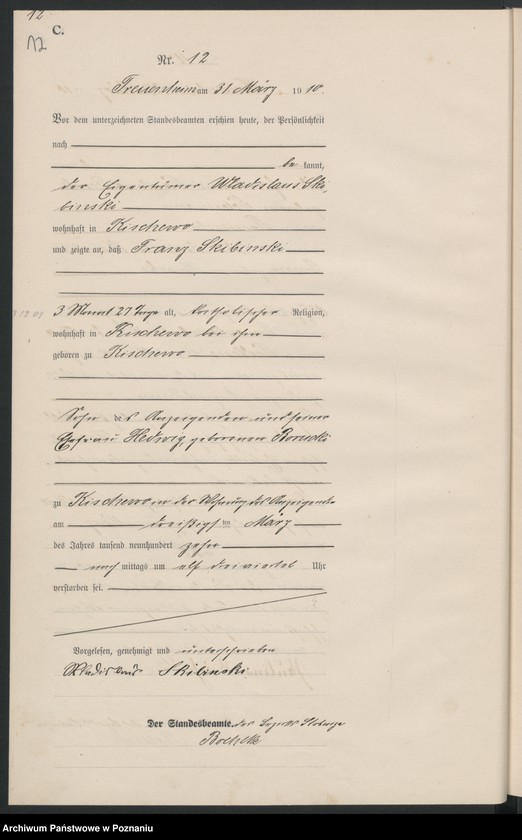 12
C.
12
Nr. 12
Treuenheim am 31 März 1910.
Vor dem unterzeichneten Standesbeamten erschien heute, der Persönlichkeit
nach
be kannt,
der Eigentümer Wladislaus Ski-
binski
wohnhaft in Kischewo
und zeigte an, daß Franz Skibinski
3 Monat 27 Tage alt, katholischer Religion,
wohnhaft in Kischewo bei ihm
geboren zu Kischewo
Sohn des Anzeigenden und seiner
Ehefrau Hedwig, geborenen
zu Kischewo in der Wohnung des Anzeigenden
am dreißigsten März
des Jahres tausend neunhundert zehn
nach mittags um elf dreiviertel Uhr
verstorben sei.
Vorgelesen, genehmigt und unterschrieben
Wladislaus Skibinski
Der Standesbeamte.
Archiwum Państwowe w Poznaniu